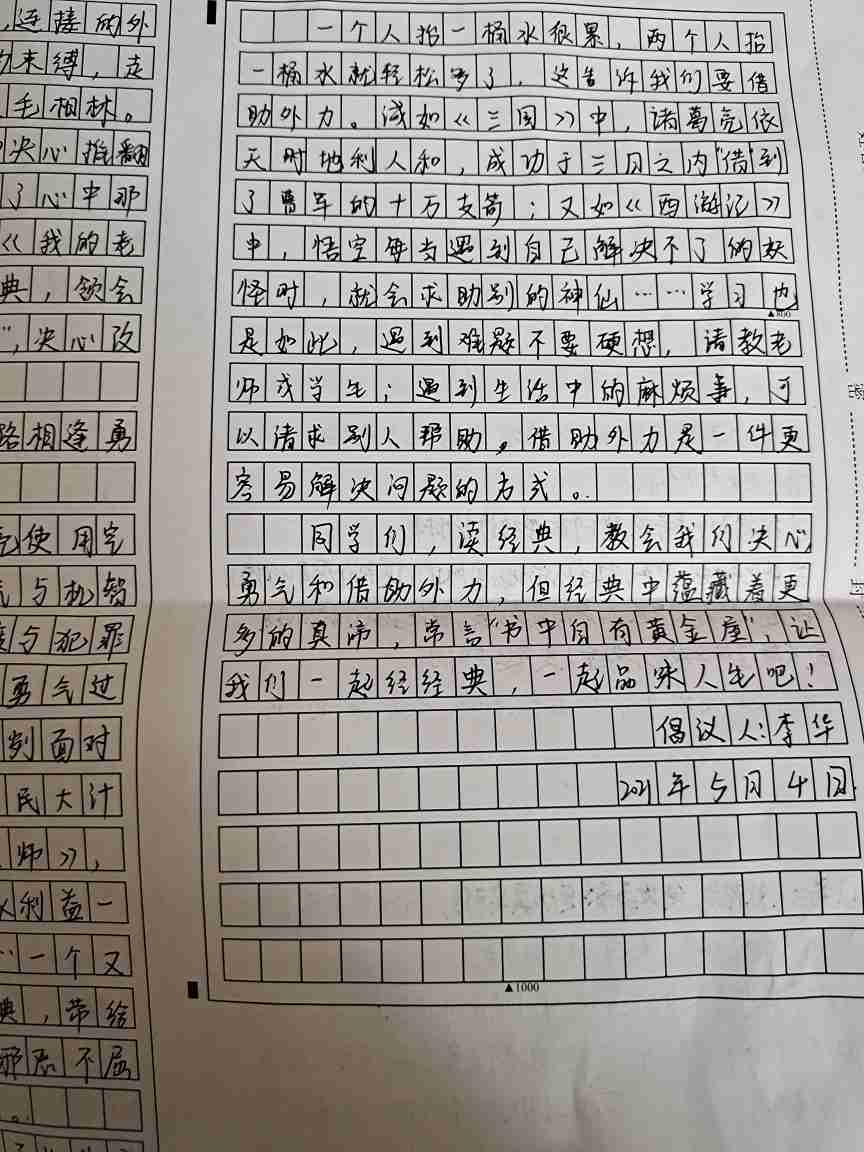 连接的外
的束缚，走
毛相林。
决心推翻
了心中那
《我的老
典，领会
”，决心改
路相逢勇
使用空
与机智
与犯罪
勇气过
别面对
民大计
师》，
利益一
一个又
典，带给
邪恶不屈
。
一个人抬一桶水很累，两个人抬
一桶水就轻松多了，这告诉我们要借
助外力。诚如《三国》中，诸葛亮依
天时地利人和，成功于三日之内“借”到
了曹军的十万支箭；又如《西游记》
中，悟空每当遇到自己解决不了的妖
怪时，就会求助别的神仙……学习也
▲800
是如此，遇到难题不要硬想，请教老
师或学生；遇到生活中的麻烦事，可
以请求别人帮助。借助外力是一件更
容易解决问题的方式。
同学们，读经典，教会我们决心
勇气和借助外力，但经典中蕴藏着更
多的真谛，常言“书中自有黄金屋”，让
我们一起经经典，一起品味人生吧！
倡议人：李华
2021年5月4日
▲1000